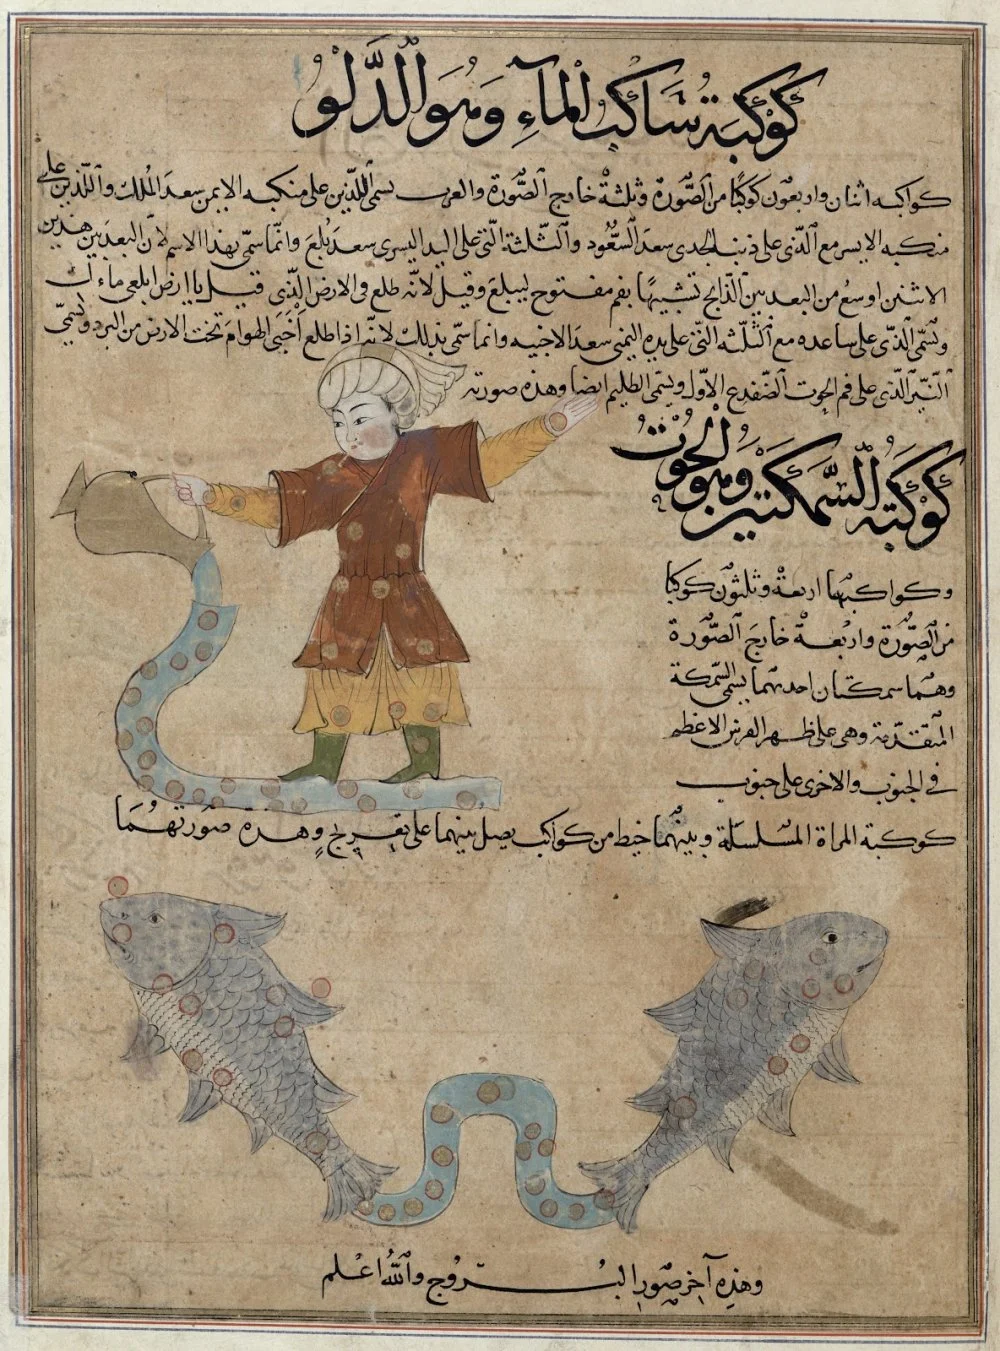 كوكبة ساكب الماء وهو الدلو
كواكبه اثنان واربعون كوكبًا من الصّورة وثلثة خارج الصّورة والعرب يسمى اللذين على منكبه الايمن سعد الملك واللذين على
منكبه الايسر مع الذى على ذنب الجدى سعد السعود والثلثة التى على اليد اليسرى سعد بلع وانما سمى بهذا الاسم لان البعد بين هذين
الاثنين اوسع من البعد بين الذابح تشبيهًا بفم مفتوح ليبلع وقيل لانه طلع فى الارض الذى قيل يا ارض ابلعى ماءك
وتسمى الذى على ساعده مع الثلثه التى على يده اليمنى سعد الاخبيه وانما سمى بذلك لانه اذا طلع اختبى الهوام تحت الارض من البرد وتسمى
النير الذى على فم الحوت الضفدع الاول ويسمى الظليم ايضا وهذه صورته
كوكبة السمكتين وهو الحوت
وكواكبها اربعة وثلثون كوكبا
من الصّورة واربعة خارج الصّورة
وهما سمكتان احدتهما يسمى السمكة
المتقدّمة وهى على ظهر الفرس الاعظم
فى الجنوب والاخرى على جنوب
كوكبة المراة المسلسلة وبينهما خيط من كواكب يصل بينهما على تعريج وهذه صورتهما
وهذه آخر صور البروج والله اعلم